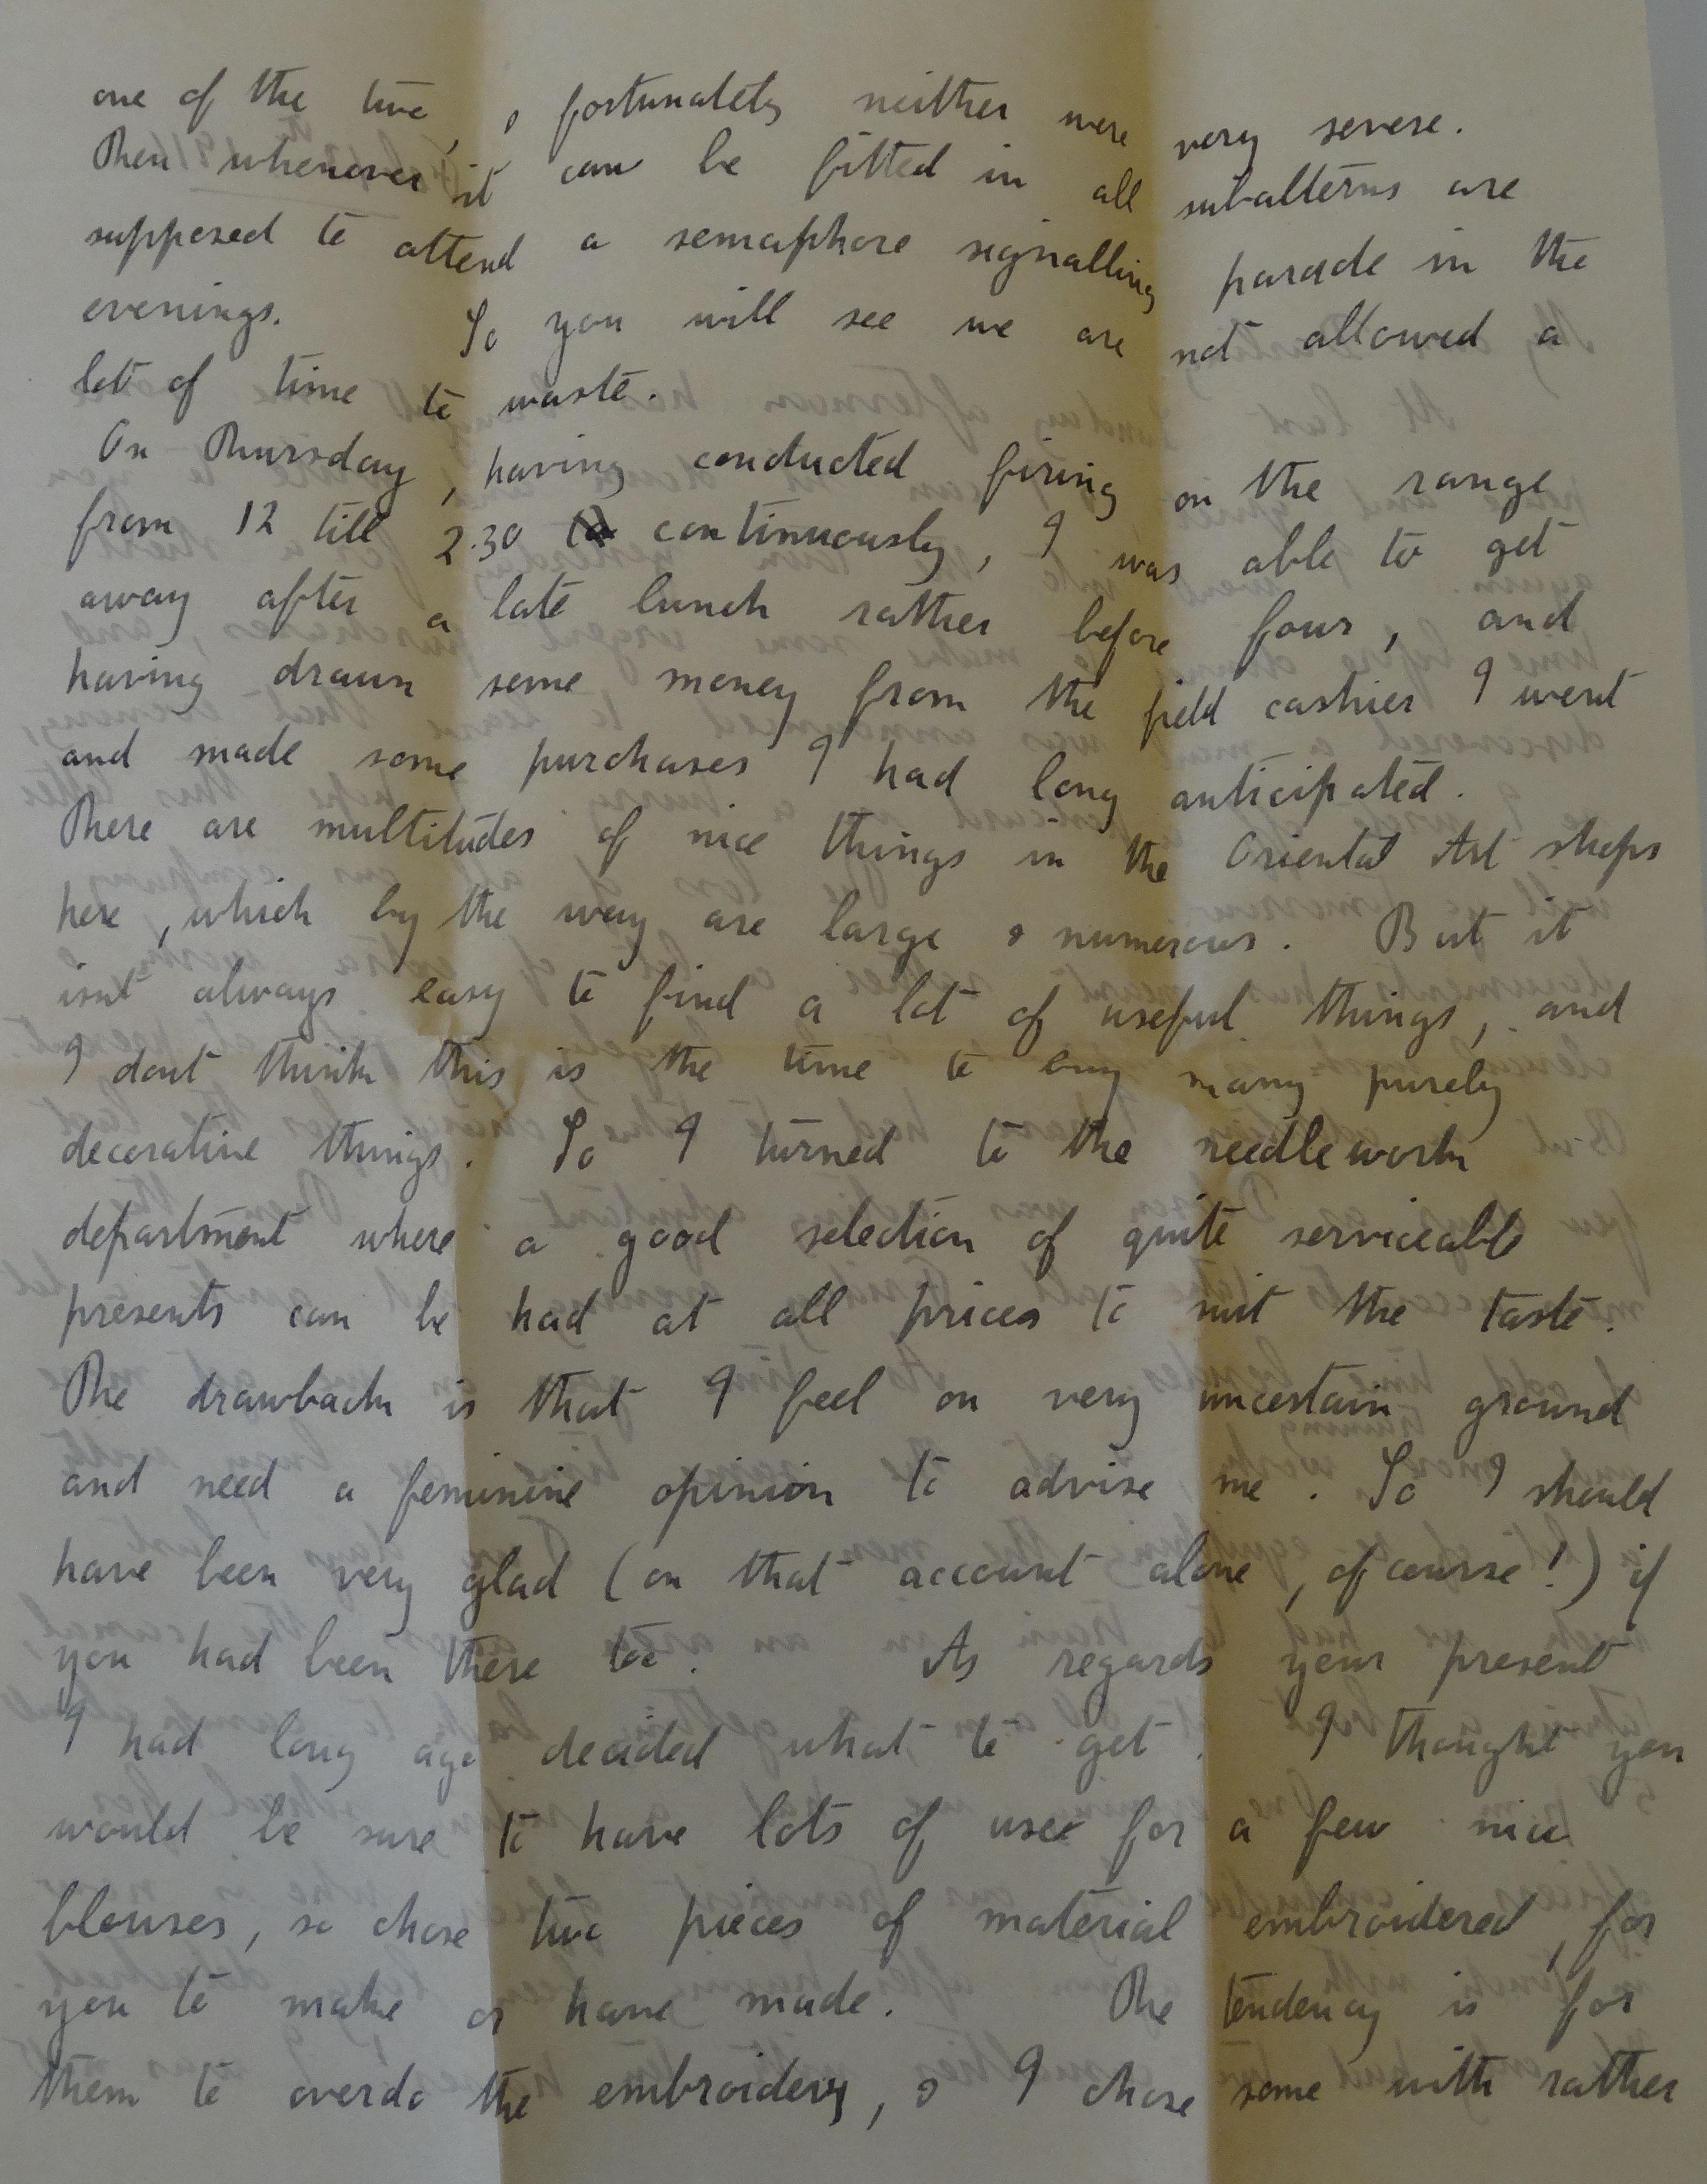 one of the two, & fortunately neither were very severe.
Then whenever it can be fitted in all subalterns are
supposed to attend a semaphore signalling parade in the
evenings. So you will see we are not allowed a
lot of time to waste.
On Thursday, having conducted firing on the range
from 12 till 2.30 continuously, I was able to get
away after a late lunch rather before four, and
having drawn some money from the field cashier I went
and made some purchases I had long anticipated.
There are multitudes of nice things in the Oriental Art shops
here, which by the way are large & numerous. But it
isnt always easy to find a lot of useful things, and
I dont think this is the time to buy many purely
decorative things. So I turned to the needlework
department where a good selection of quite serviceable
presents can be had at all prices to suit the taste.
The drawback is that I feel on very uncertain ground
and need a feminine opinion to advise me. So I should
have been very glad (on that account alone, of course!) if
you had been there too. As regards your present
I had long ago decided what to get. I thought you
would be sure to have lots of use for a few nice
blouses, so chose two pieces of material embroidered, for
you to make or have made. The tendency is for
them to overdo the embroidery, & I chose some with rather